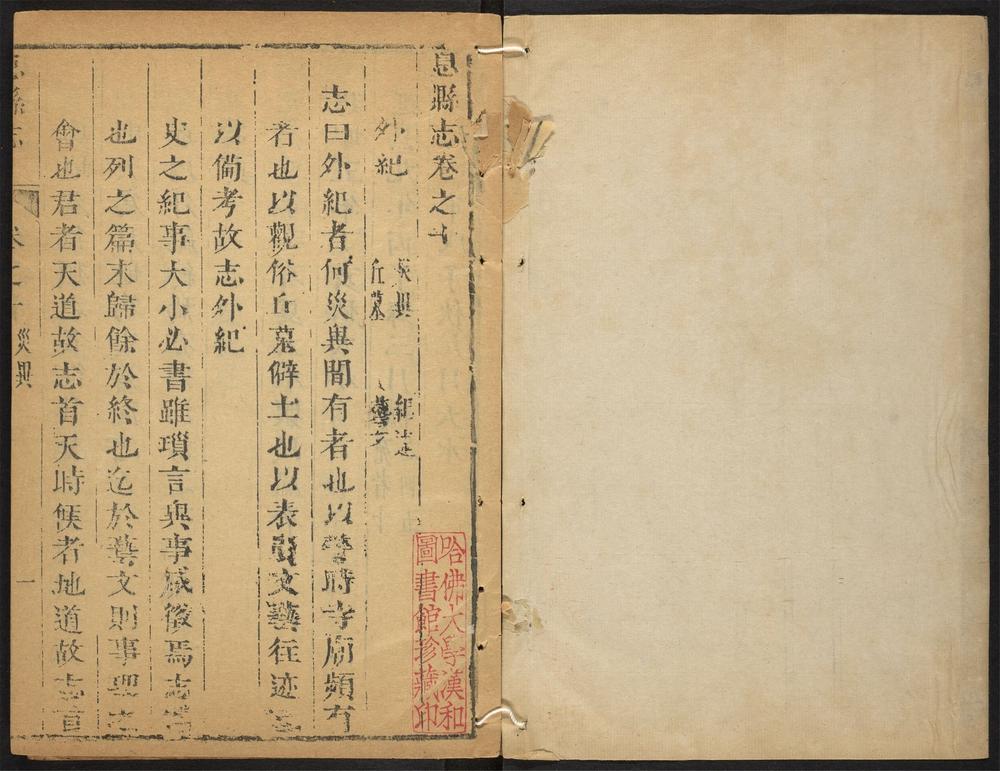 息縣志卷之十
外紀
災異
紀
丘墓
藝文
志曰外紀者何災異間有者也以警時寺廟頻有
者也以觀俗丘墓僻土也以表賢文藝往迹
以備考故志外紀
史之紀事大小必書雖瑣言異事咸徵焉志
也列之篇末歸餘於終也迄於藝文則事理之
會也君者天道故志首天時候者地道故志
息縣志
卷之十
災異
一
哈佛大學漢和
圖書館珍藏印